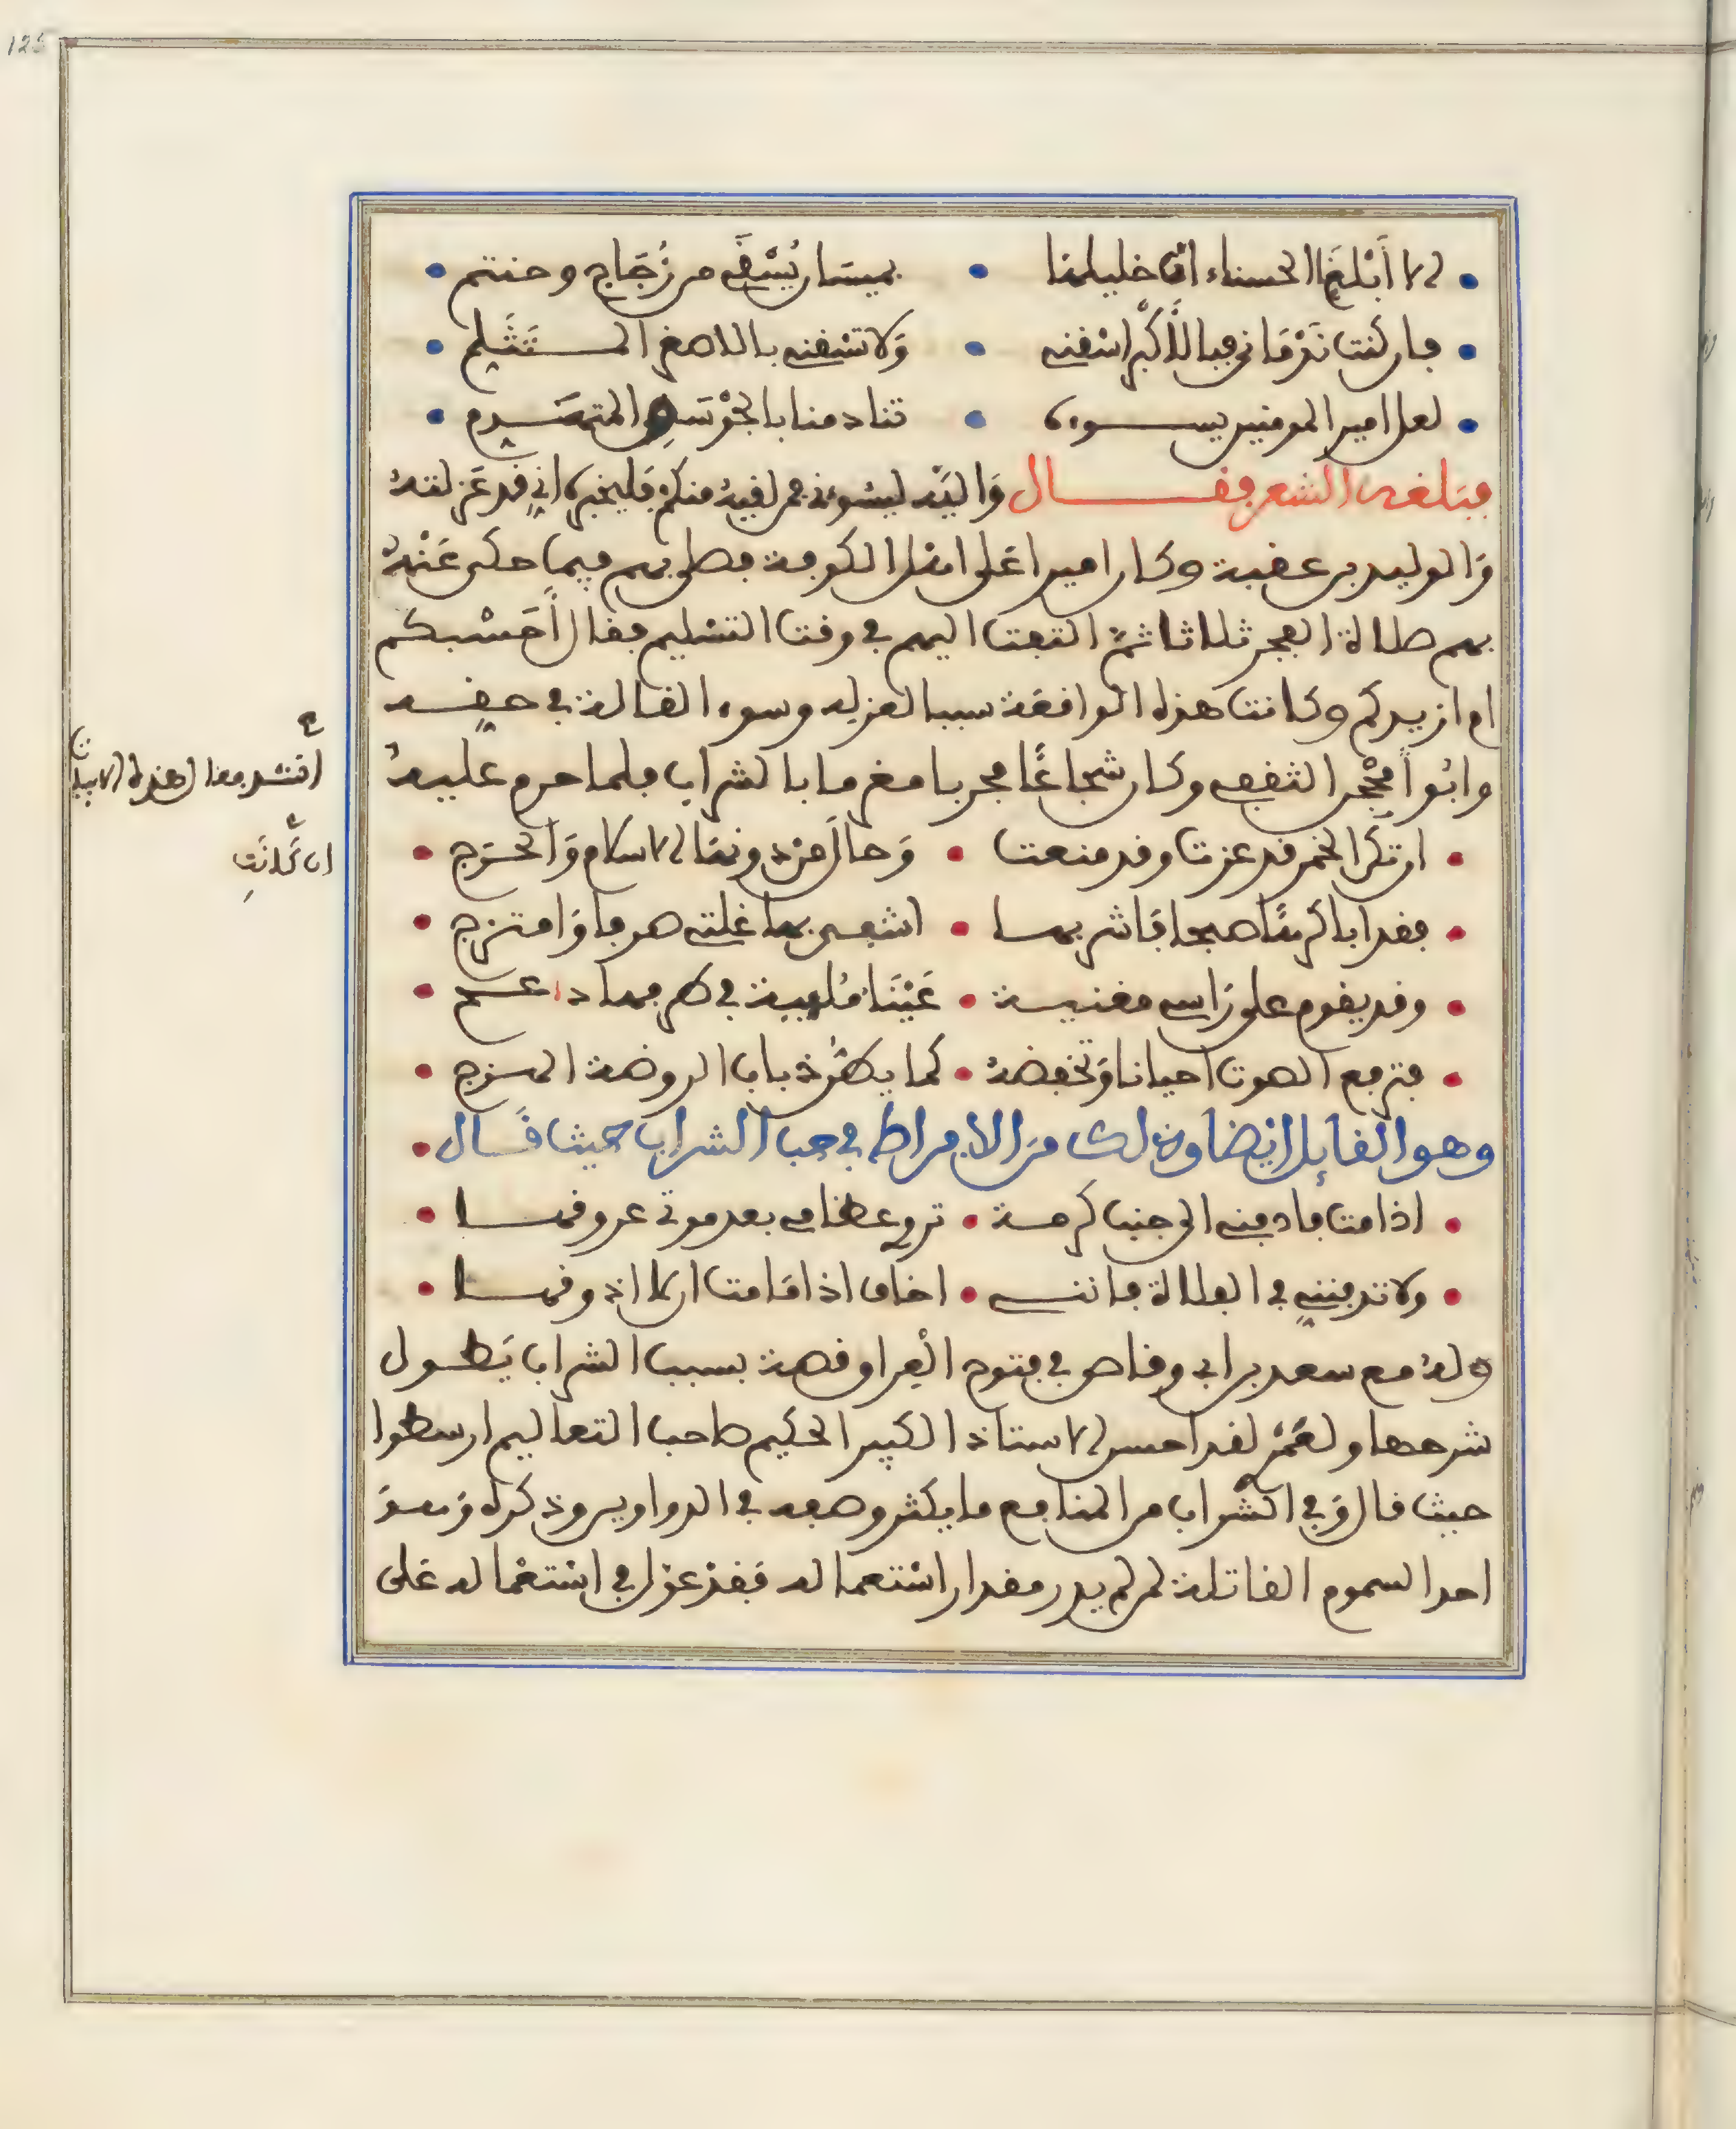 125
الا أبلغا الحسناء ان خليلها • بميسان يسقى من زجاج وحنتم
فان كنت ندماني فبالأكبر اسقني • ولا تسقني بالاصغر المتثلم
لعل امير المومنين يسوءه • تنادمنا بالجوسق المتهدم
فبلغه الشعر فقال والله ليسوءني فمن لقيه منكم فليخبره اني قد عزلته
والوليد بن عقبة وكان اميرا على اهل الكوفة فصلى بهم فيما حكى عنه
بهم صلاة الفجر ثلاثا ثم التفت اليهم في وقت التسليم فقال أحسبكم
ام ازيدكم وكانت هذه الواقعة سببا لعزله وسوء القالة في حقه
وابو أمحجن الثقفي وكان شجاعا مجربا مغرما بالشراب فلما حرم عليه
انشد فقال هذه الابيات
ان كانت
ان تكن الخمر قد عزت وقد منعت • وحال من دونها الاسلام والحرج
فقد اباكرها صهبا فاشربها • اشفي بها غلتي صرفا وامتزج
وقد يقوم على راسي مغنية • عينا ملهية في طرفها دعج
فترفع الصوت احيانا وتخفضه • كما يطن ذباب الروضة الهزج
وهو القايل ايضا وذلك من الافراط في حب الشراب حيث قال
اذا مت فادفني الى جنب كرمة • تروي عظامي بعد موتي عروقها
ولا تدفنني في الفلاة فانني • اخاف اذا ما مت ان لا اذوقها
وله مع سعد بن ابي وقاص في فتوح العراق قصة بسبب الشراب يطول
شرحها ولعمر لقد احسن الاستاذ الكبير الحكيم صاحب التعاليم ارسطوا
حيث قال وفي الشراب من المنافع ما يكثر وصفه في الدواوين وذكره وهو
احد السموم القاتلة لمن لم يدر مقدار استعماله فقد عول في استعماله على